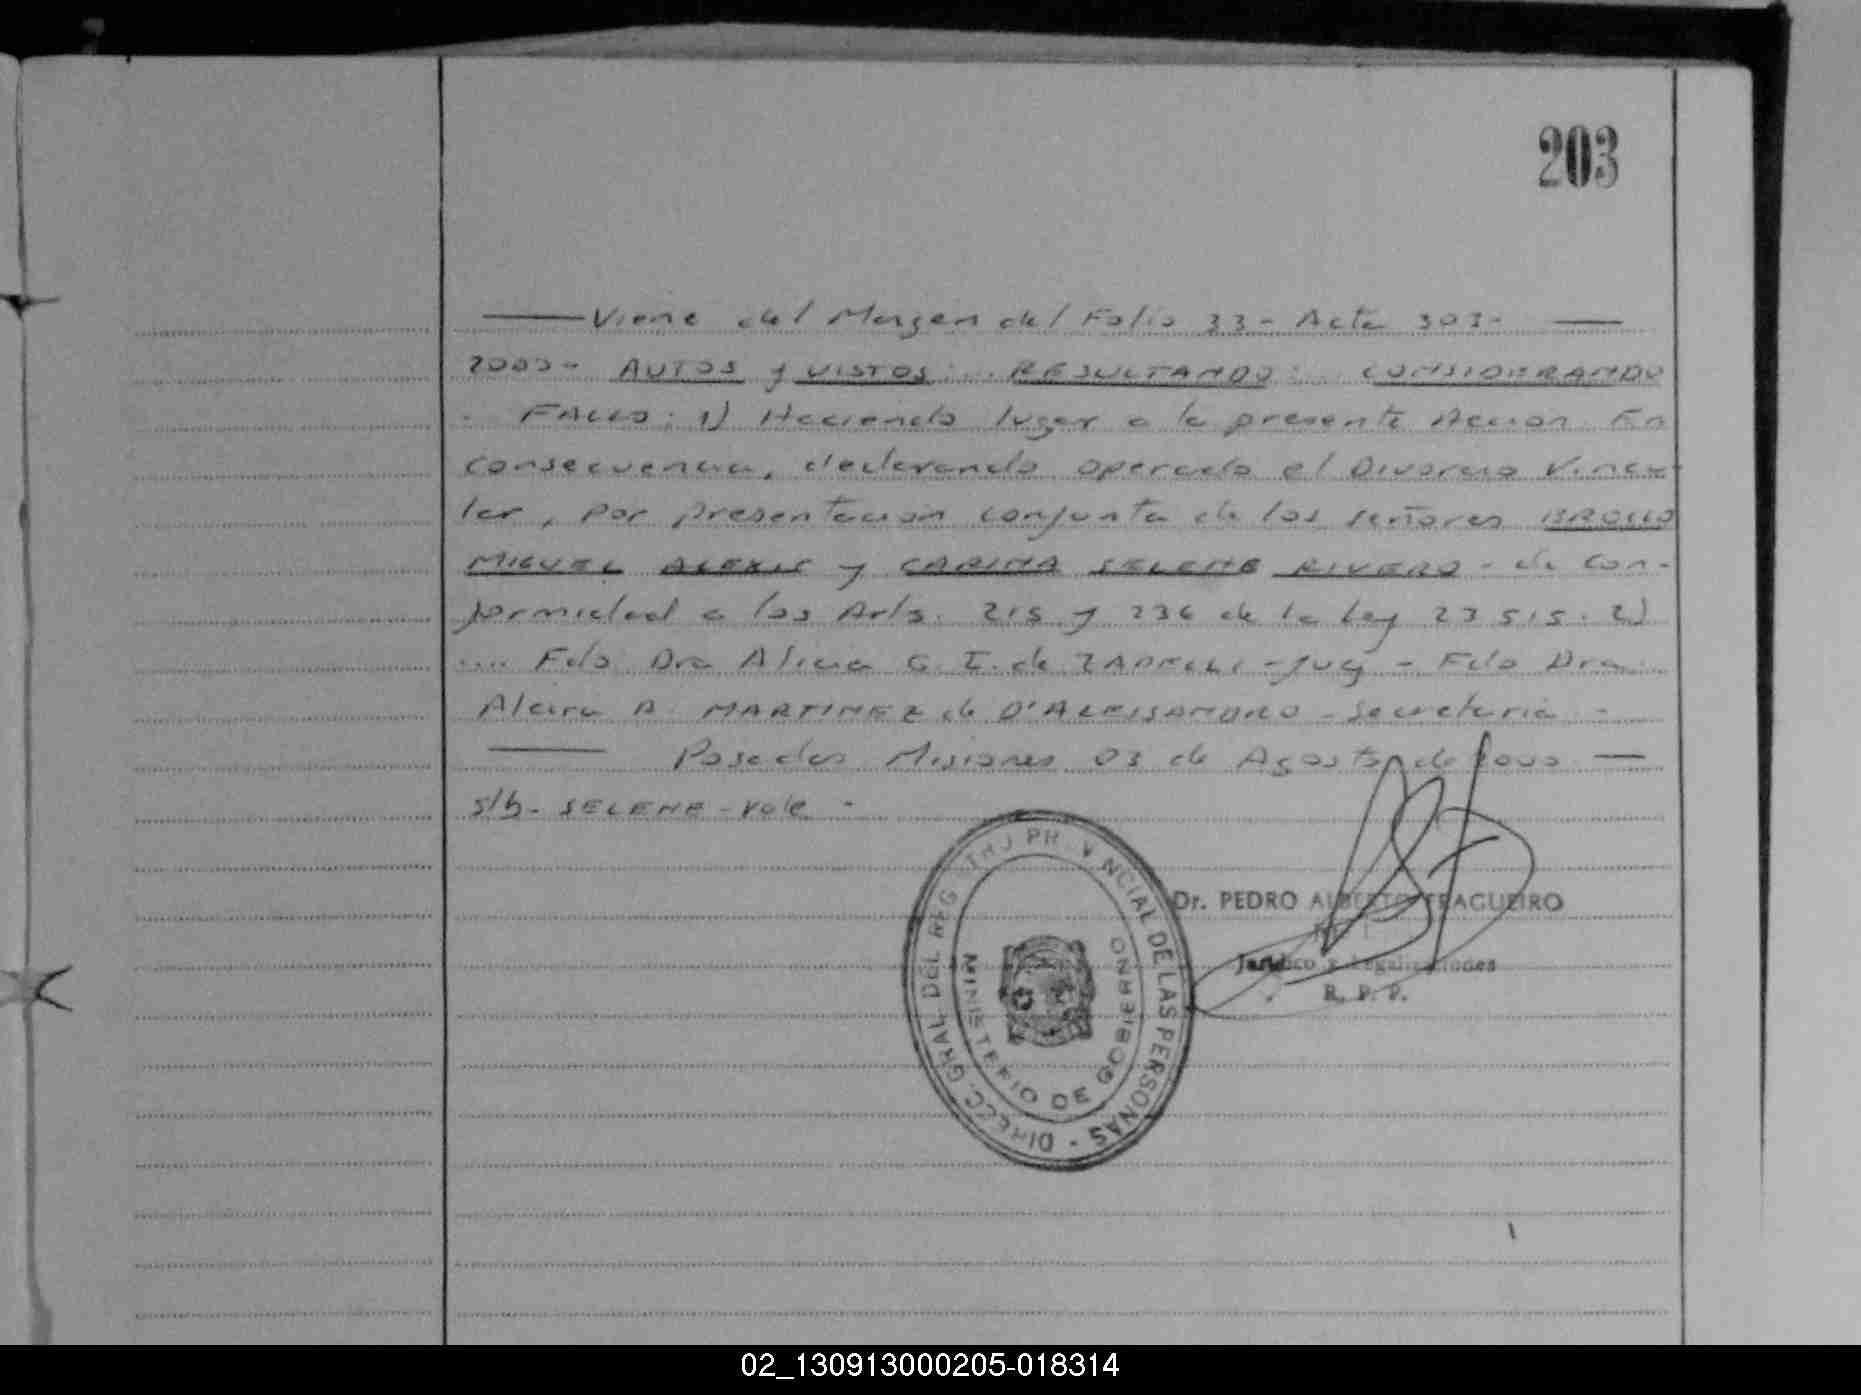 203
Viene del Margen del Folio 33 - Acta 303-
2000- AUTOS y VISTOS: .. RESULTANDO: .. CONSIDERANDO
. FALLO: 1) Haciendo lugar a la presente Accion. En
consecuencia, declarando operado el Divorcio Vincu-
lar, por presentacion conjunta de los señores BROLLO
MIGUEL ALEXIS y CARINA SELENE RIVERO - de con-
formidad a los Arts. 215 y 236 de la Ley 23.515. 2)
.... Fdo Dra Alicia G. I. de - Juez - Fdo Dra
Alcira A. MARTINEZ de D'ALEISANDRO - Secretaria -
Posadas Misiones 03 de Agosto de 2000
s/b - SELENE - vale -
DIRECC. GRAL. DEL REGISTRO PROVINCIAL DE LAS PERSONAS -
MINISTERIO DE GOBIERNO
Dr. PEDRO ALBERTO FRAGUEIRO
Jurídico y Legalizaciones
R. P. P.
02_130913000205-018314